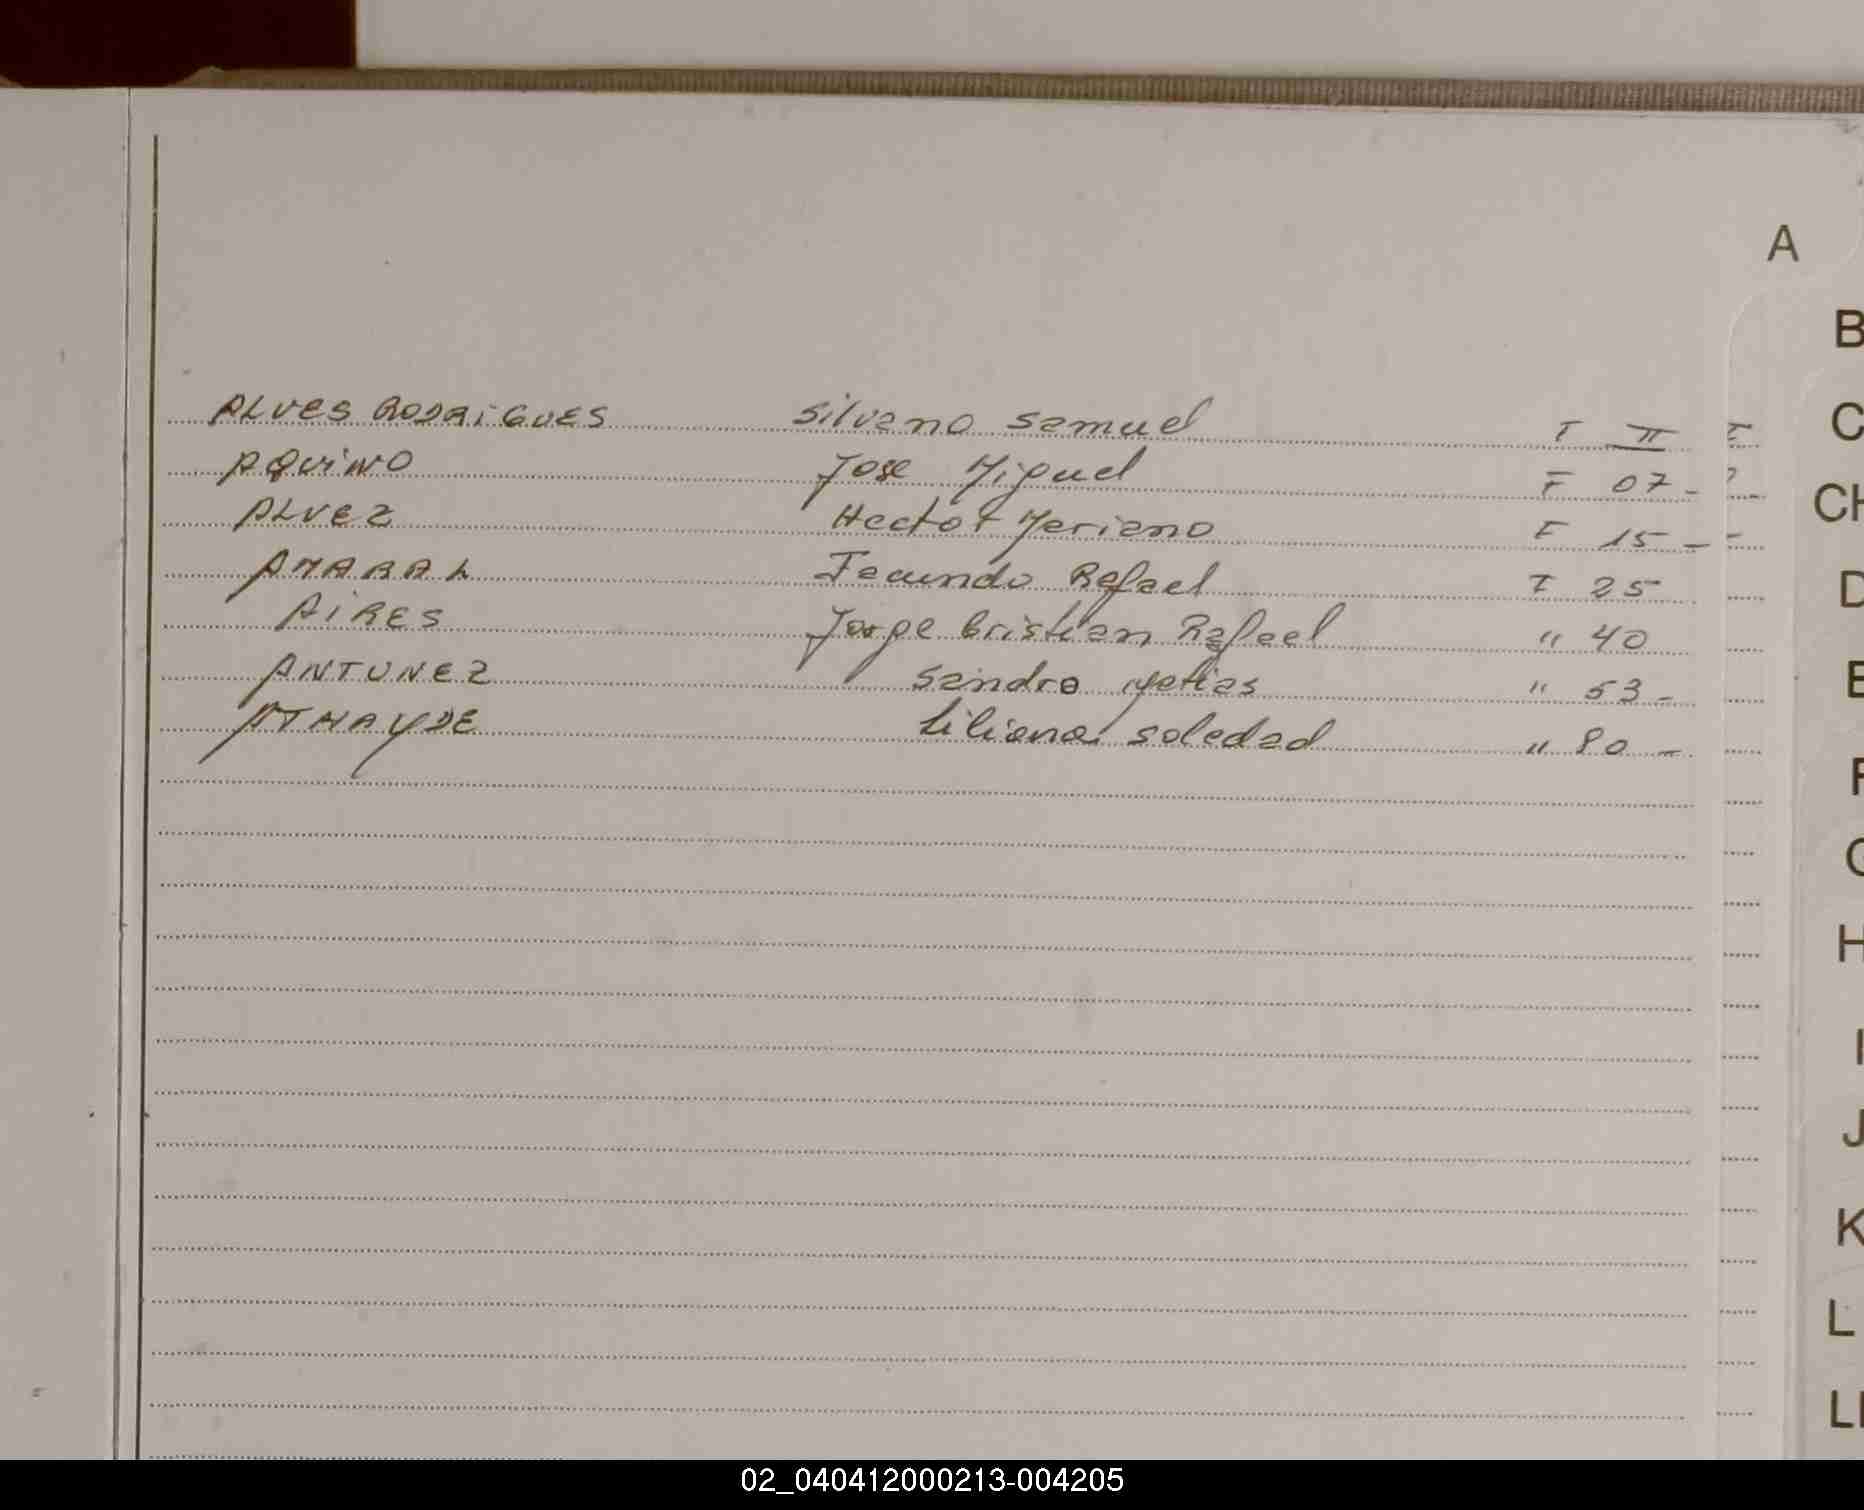 A
B
C
CH
D
E
F
G
H
I
J
K
L
LL
ALVES RODRIGUES Silvano Samuel T II
AQUINO Jose Miguel F 07 -
ALVEZ Hector Mariano F 15 -
AMARAL Facundo Rafael F 25
AIRES Jorge Cristian Rafael " 40
ANTUNEZ Sandro Matias " 53 -
ATHAYDE Liliana Soledad " 80 -
02_040412000213-004205